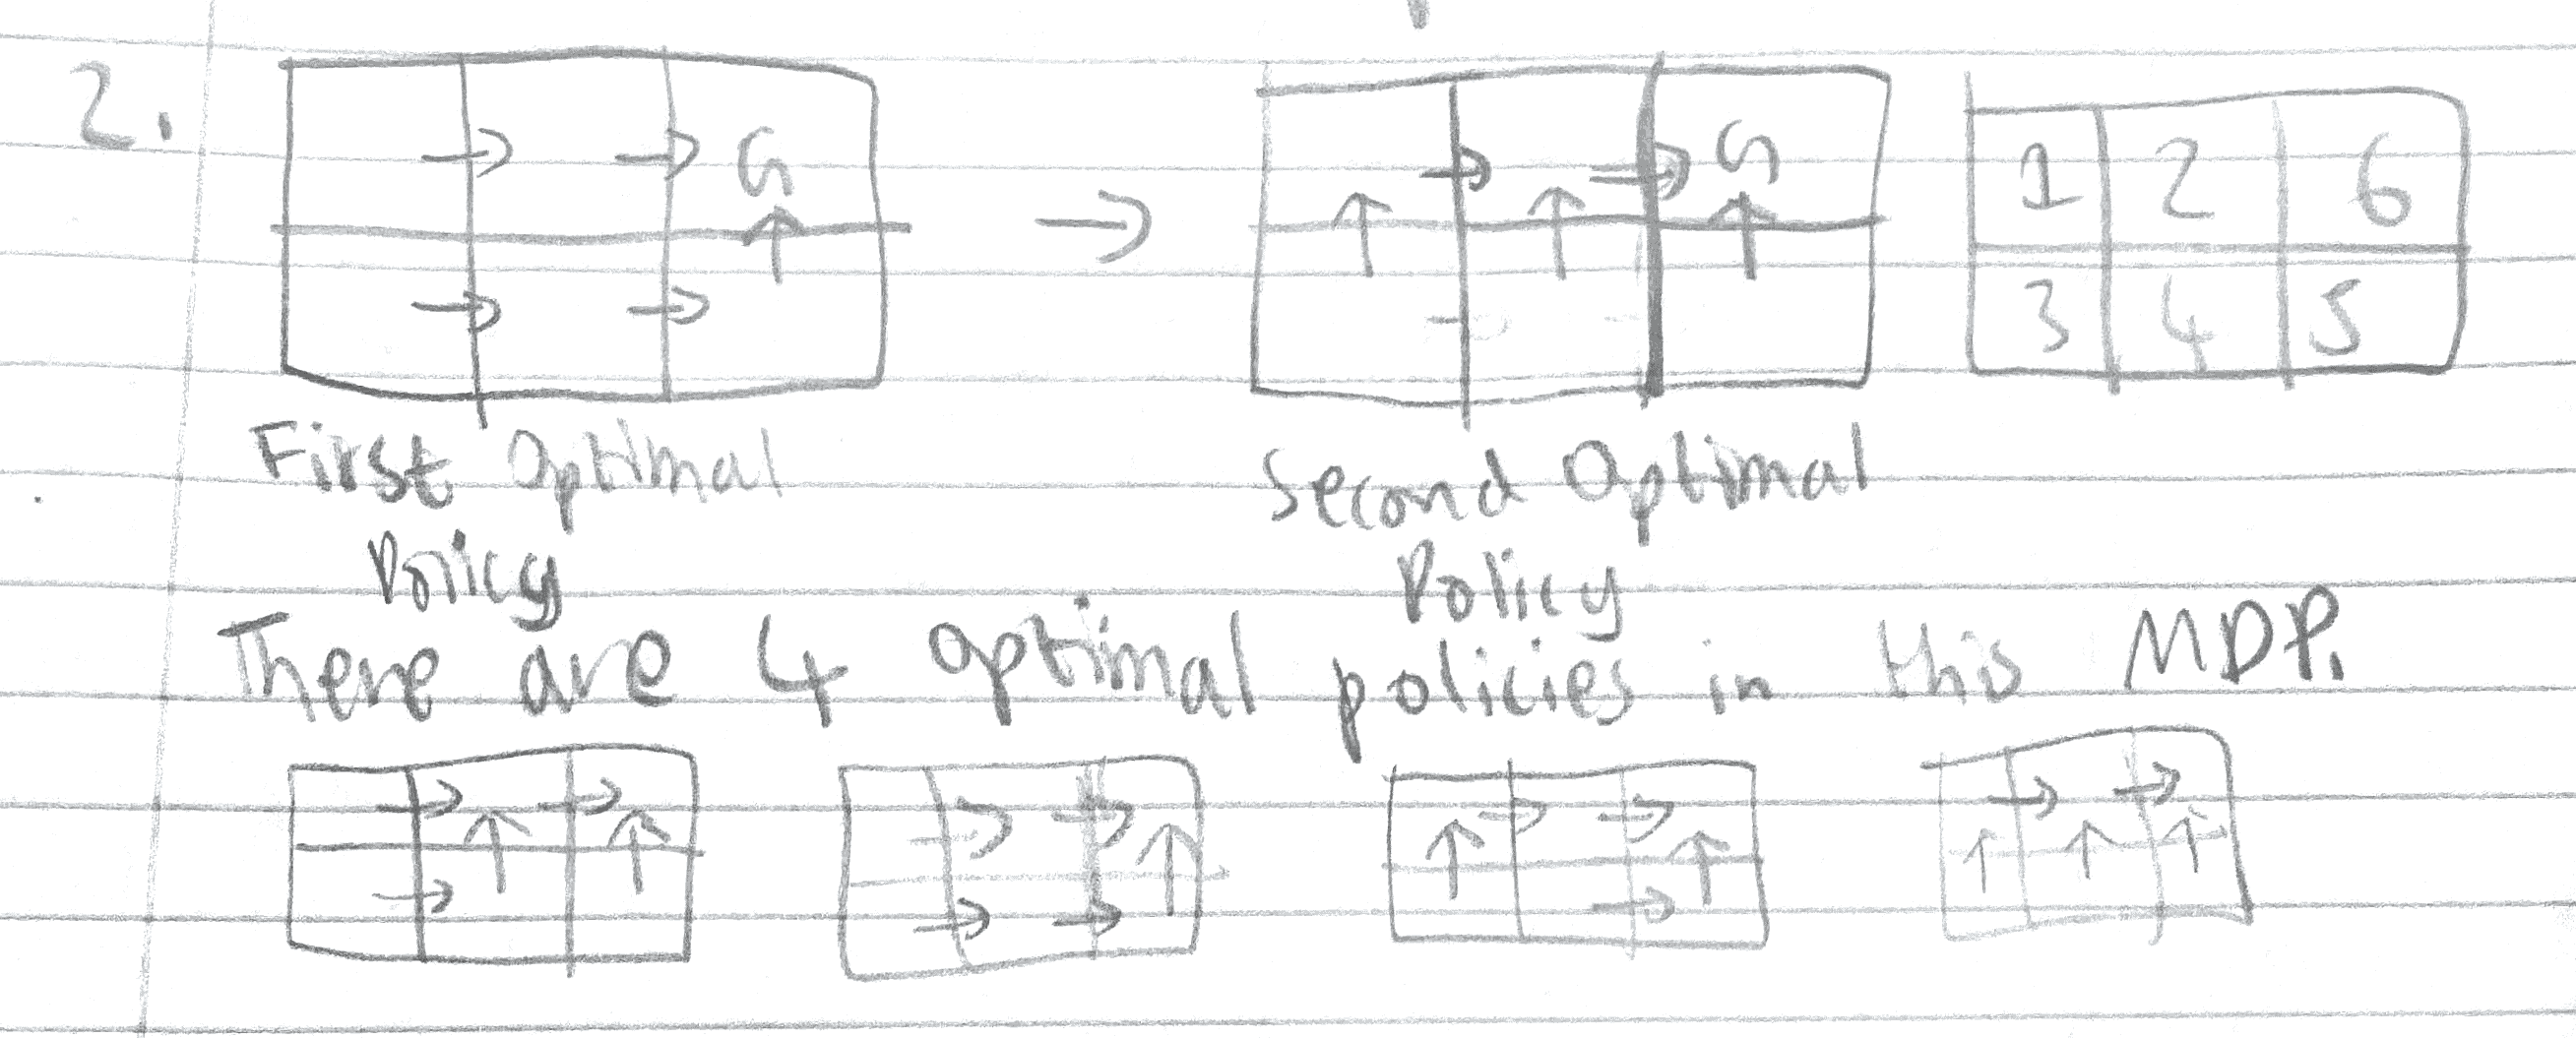 2.
G → G 1 2 6
3 4 5
First Optimal Second Optimal
Policy Policy
There are 4 optimal policies in this MDP.